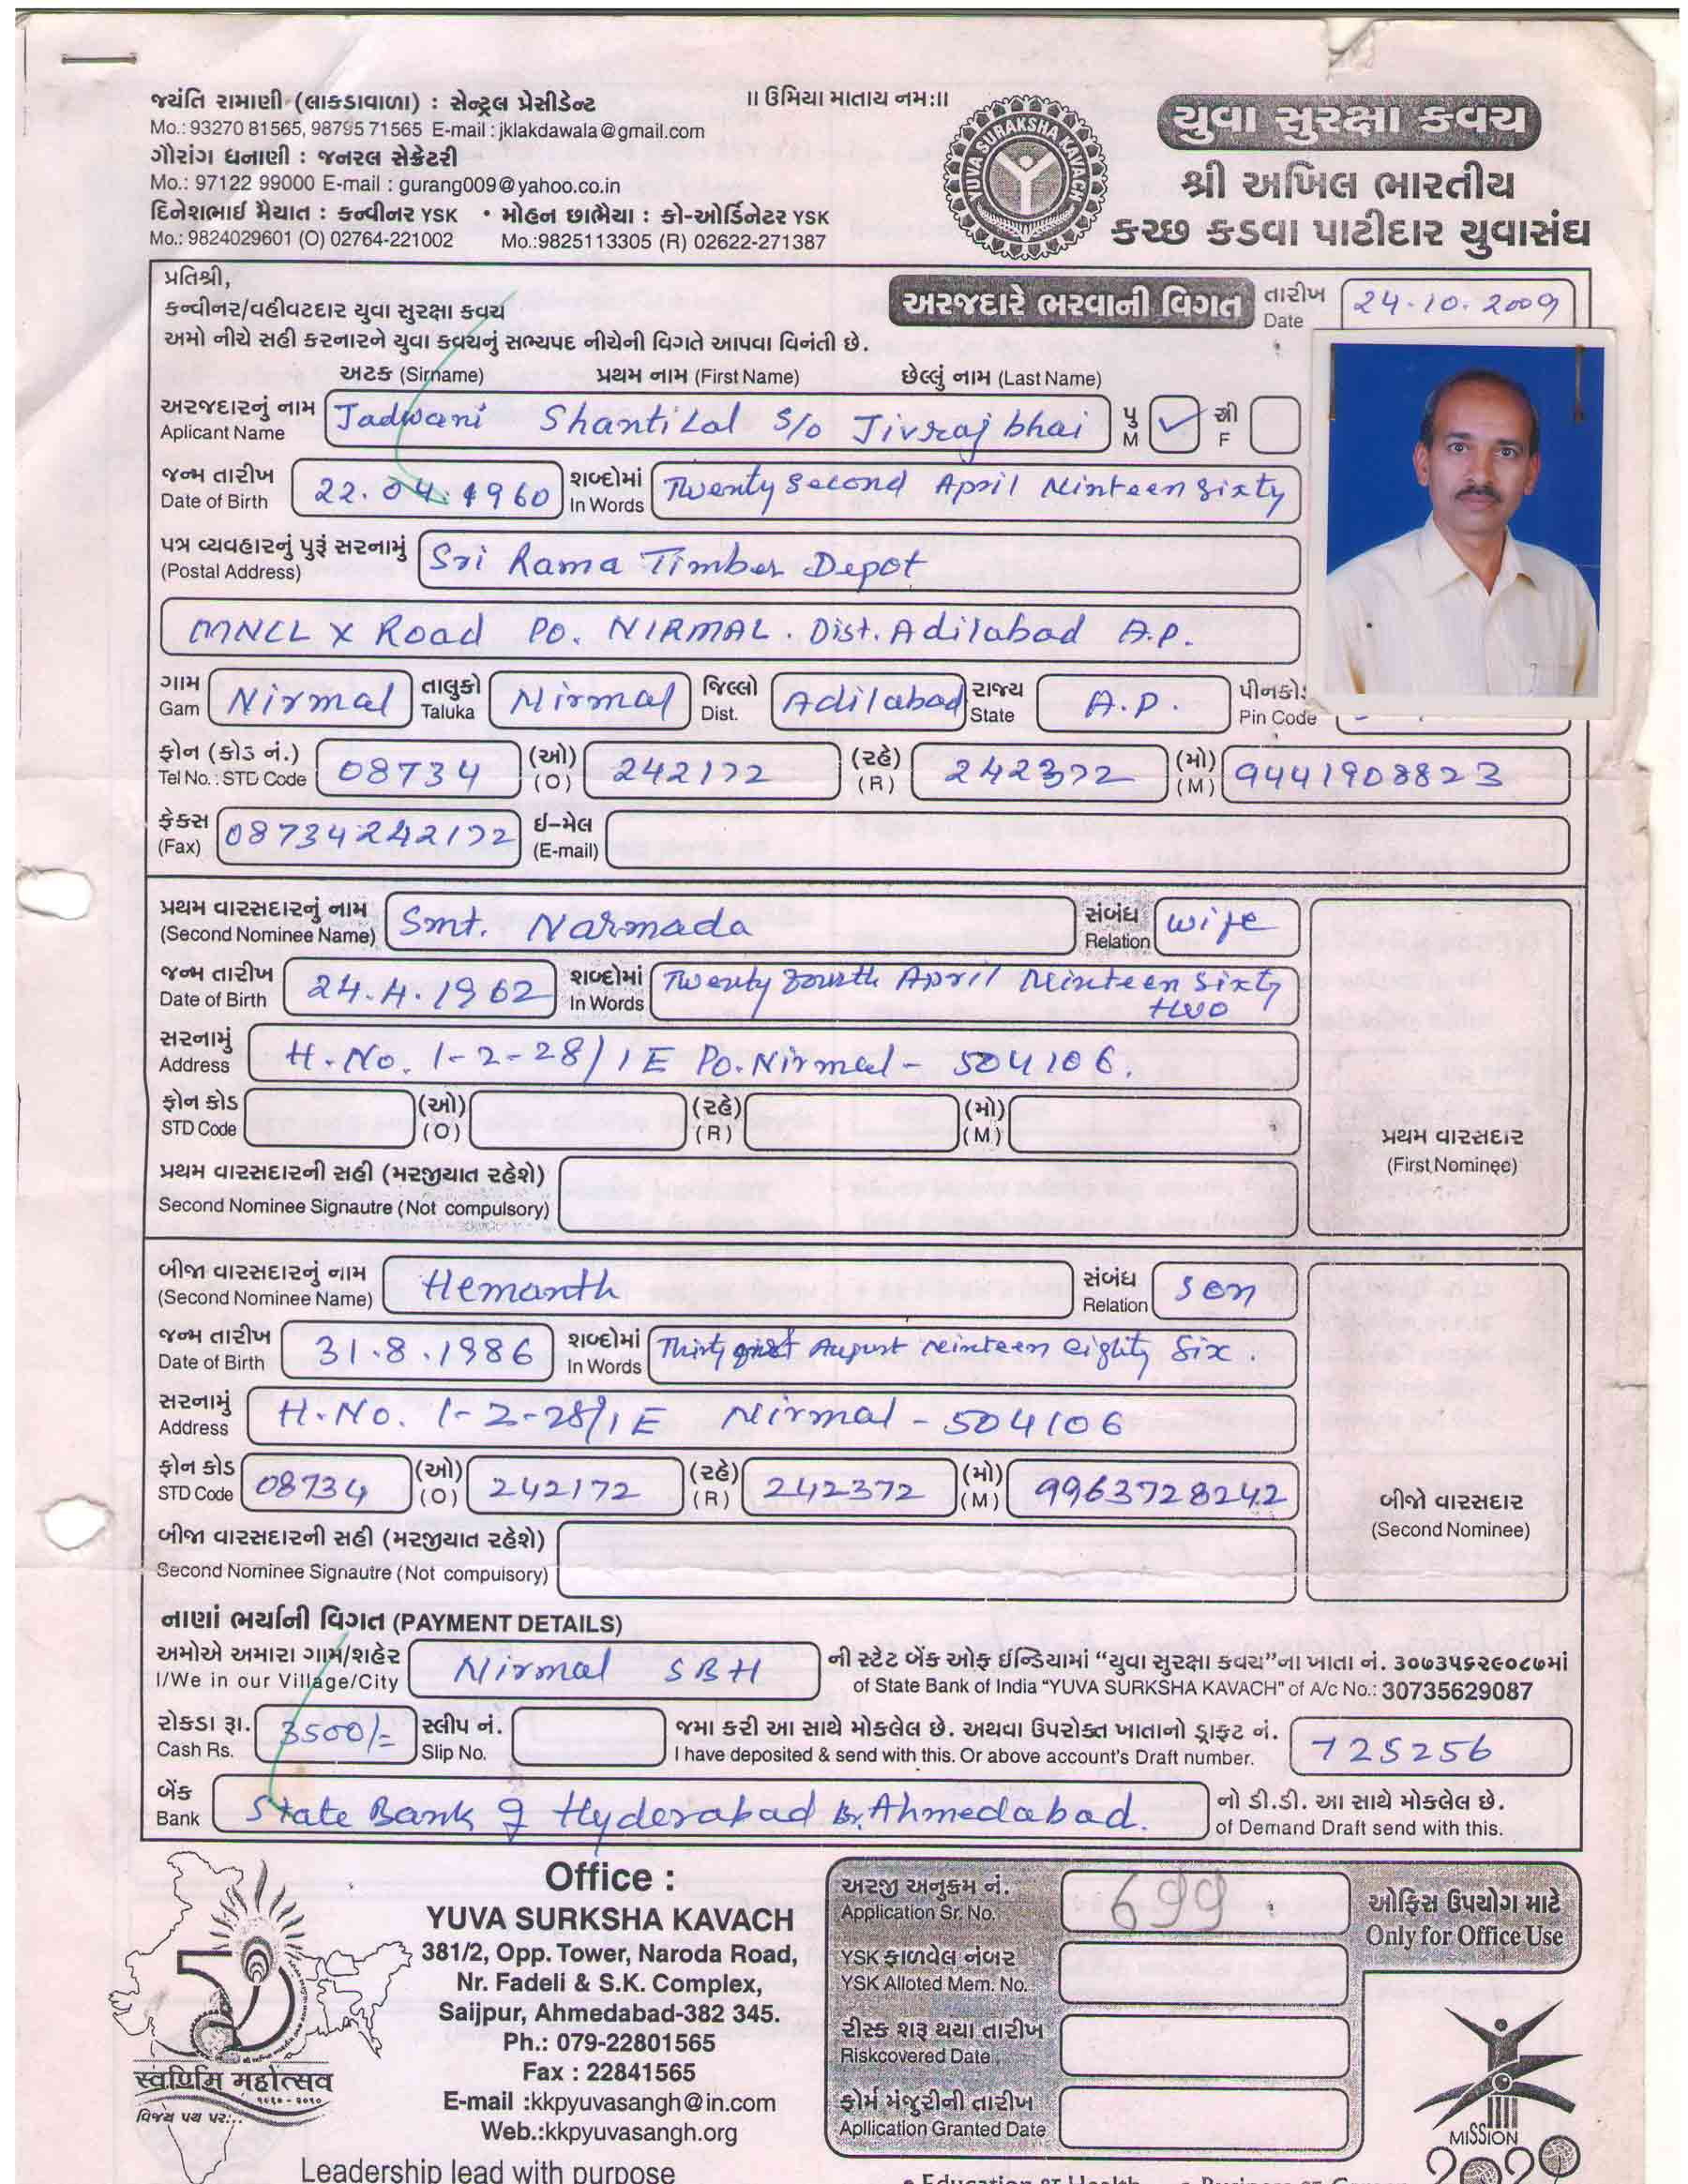 જયંતિ રામાણી (લાકડાવાળા) : સેન્ટ્રલ પ્રેસીડેન્ટ
Mo.: 93270 81565, 98795 71565 E-mail : jklakdawala@gmail.com
ગૌરાંગ ધનાણી : જનરલ સેક્રેટરી
Mo.: 97122 99000 E-mail : gurang009@yahoo.co.in
દિનેશભાઈ મૈયાત : કન્વીનર YSK • મોહન છાભૈયા : કો-ઓર્ડિનેટર YSK
Mo.: 9824029601 (O) 02764-221002 Mo.:9825113305 (R) 02622-271387
॥ ઉમિયા માતાય નમઃ॥
YUVA SURAKSHA KAVACH
યુવા સુરક્ષા કવચ
શ્રી અખિલ ભારતીય
કચ્છ કડવા પાટીદાર યુવાસંઘ
પ્રતિશ્રી,
કન્વીનર/વહીવટદાર યુવા સુરક્ષા કવચ
અરજદારે ભરવાની વિગત તારીખ Date 24.10.2009
અમો નીચે સહી કરનારને યુવા કવચનું સભ્યપદ નીચેની વિગતે આપવા વિનંતી છે.
અટક (Sirname) પ્રથમ નામ (First Name) છેલ્લું નામ (Last Name)
અરજદારનું નામ Aplicant Name Jadwani Shantilal S/o Jivraj bhai પુ M ✓ સ્ત્રી F
જન્મ તારીખ Date of Birth 22.04.1960 શબ્દોમાં In Words Twenty Second April Ninteen Sixty
પત્ર વ્યવહારનું પુરૂં સરનામું (Postal Address) Sri Rama Timber Depot
MNCL X Road PO. NIRMAL. Dist. Adilabad A.P.
ગામ Gam Nirmal તાલુકો Taluka Nirmal જિલ્લો Dist. Adilabad રાજ્ય State A.P. પીનકો Pin Code
ફોન (કોડ નં.) Tel No.: STD Code 08734 (ઓ) (O) 242172 (રહે) (R) 242372 (મો) (M) 9441908823
ફેક્સ (Fax) 08734242172 ઈ-મેલ (E-mail)
પ્રથમ વારસદારનું નામ (Second Nominee Name) Smt. Narmada સંબંધ Relation Wife
જન્મ તારીખ Date of Birth 24.4.1962 શબ્દોમાં In Words Twenty Fourth April Ninteen Sixty two
સરનામું Address H.No. 1-2-28/1E Po. Nirmal - 504106.
ફોન કોડ STD Code (ઓ) (O) (રહે) (R) (મો) (M)
પ્રથમ વારસદાર
(First Nominee)
પ્રથમ વારસદારની સહી (મરજીયાત રહેશે)
Second Nominee Signautre (Not compulsory)
બીજા વારસદારનું નામ (Second Nominee Name) Hemanth સંબંધ Relation Son
જન્મ તારીખ Date of Birth 31.8.1986 શબ્દોમાં In Words Thirty first August Ninteen eighty Six.
સરનામું Address H.No. 1-2-28/1E Nirmal - 504106
ફોન કોડ STD Code 08734 (ઓ) (O) 242172 (રહે) (R) 242372 (મો) (M) 9963728242
બીજો વારસદાર
(Second Nominee)
બીજા વારસદારની સહી (મરજીયાત રહેશે)
Second Nominee Signautre (Not compulsory)
નાણાં ભર્યાની વિગત (PAYMENT DETAILS)
અમોએ અમારા ગામ/શહેર Nirmal SBH ની સ્ટેટ બેંક ઓફ ઈન્ડિયામાં "યુવા સુરક્ષા કવચ"ના ખાતા નં. ૩૦૭૩૫૬૨૯૦૮૭માં
I/We in our Village/City of State Bank of India "YUVA SURKSHA KAVACH" of A/c No.: 30735629087
રોકડા રૂા. Cash Rs. 3500/= સ્લીપ નં. Slip No. જમા કરી આ સાથે મોકલેલ છે. અથવા ઉપરોક્ત ખાતાનો ડ્રાફ્ટ નં. 725256
I have deposited & send with this. Or above account's Draft number.
બેંક Bank State Bank of Hyderabad Br. Ahmedabad. નો ડી.ડી. આ સાથે મોકલેલ છે.
of Demand Draft send with this.
50
स्वर्णिम महोत्सव
૧૯૬૦ - ૨૦૧૦
વિજય પથ પર...
Office :
YUVA SURKSHA KAVACH
381/2, Opp. Tower, Naroda Road,
Nr. Fadeli & S.K. Complex,
Saijpur, Ahmedabad-382 345.
Ph.: 079-22801565
Fax : 22841565
E-mail :kkpyuvasangh@in.com
Web.:kkpyuvasangh.org
Leadership lead with purpose
અરજી અનુક્રમ નં. Application Sr. No. 699
YSK ફાળવેલ નંબર
YSK Alloted Mem. No.
રીસ્ક શરૂ થયા તારીખ
Riskcovered Date
ફોર્મ મંજુરીની તારીખ
Apllication Granted Date
ઓફિસ ઉપયોગ માટે
Only for Office Use
MISSION
2020